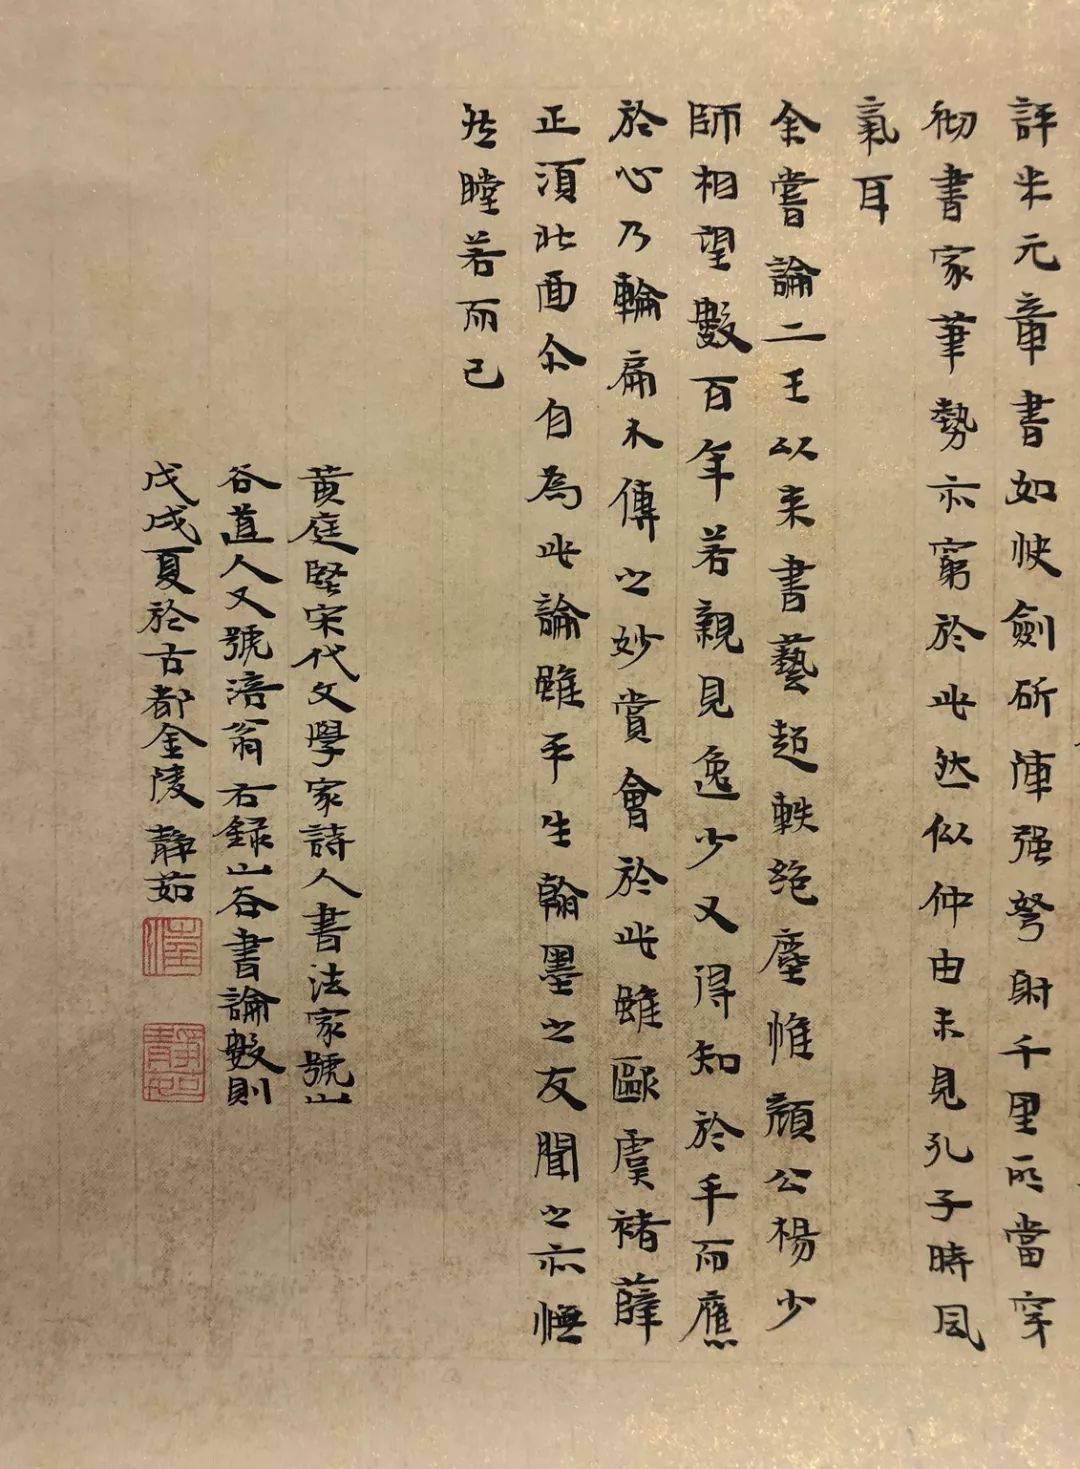 評米元章書如快劍斫陣强弩射千里所當穿
彻書家筆勢亦窮於此然似仲由未見孔子時風
氣耳
余嘗論二王以来書藝超軼绝塵惟顔公楊少
師相望數百年若親見逸少又得知於手而應
於心乃輪扁不傳之妙賞會於此雖歐虞褚薛
正須北面尒自為此論雖平生翰墨之友聞之亦憮
然瞠若而已
黄庭堅宋代文學家詩人書法家號山
谷道人又號涪翁右録山谷書論數則
戊戌夏於古都金陵 静茹